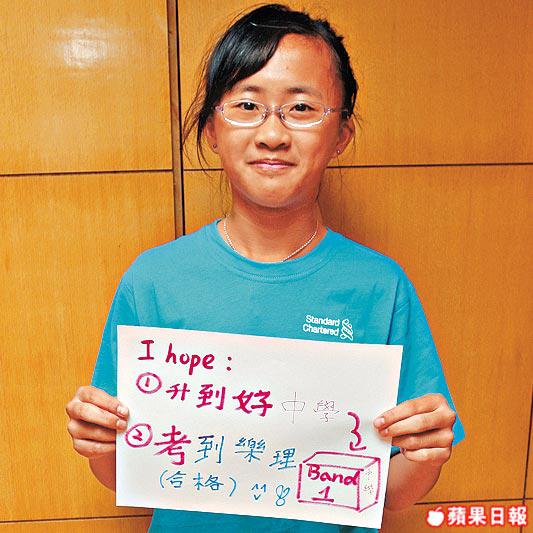 Standard
Chartered
I hope :
① 升到好中學
② 考到樂理
(合格)
Band
1
蘋果日報